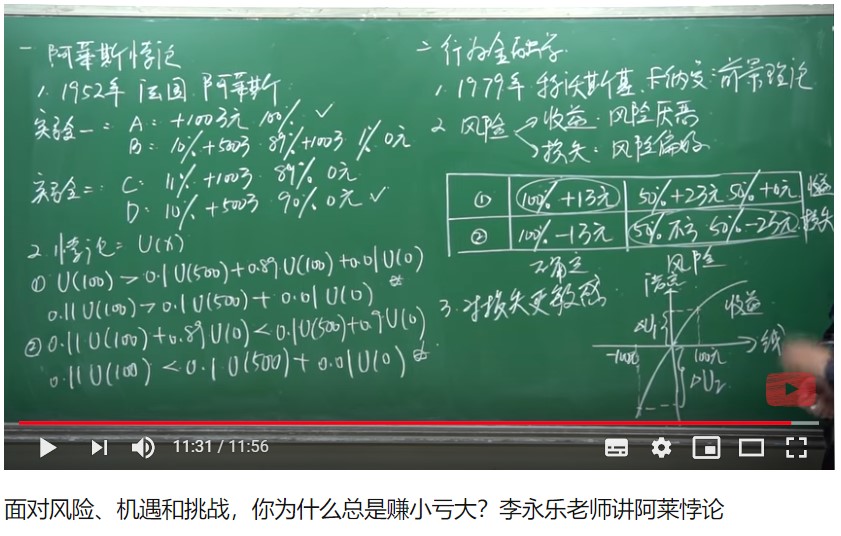 一 阿莱斯悖论
1. 1952年 法国 阿莱斯
实验一: A: +100万元 100% ✓
B: 10% +500万 89% +100万 1% 0元
实验二: C: 11% +100万 89% 0元
D: 10% +500万 90% 0元 ✓
2. 悖论: U(x)
① U(100) > 0.1 U(500)+0.89 U(100)+0.01 U(0)
0.11 U(100) > 0.1 U(500) + 0.01 U(0)
② 0.11 U(100)+0.89 U(0) < 0.1 U(500)+0.9 U(0)
0.11 U(100) < 0.1 U(500) + 0.01 U(0)
二 行为金融学
1. 1979年 特沃斯基、卡纳曼: 前景理论
2. 风险
收益: 风险厌恶
损失: 风险偏好
① 100% +1万元 50% +2万元 50% +0元 收益
② 100% -1万元 50% 不亏 50% -2万元 损失
确定 风险
3. 对损失更敏感
满意
收益
ΔU₁
-100元 100元 钱
ΔU₂
11:31 / 11:56
面对风险、机遇和挑战，你为什么总是赚小亏大？李永乐老师讲阿莱悖论